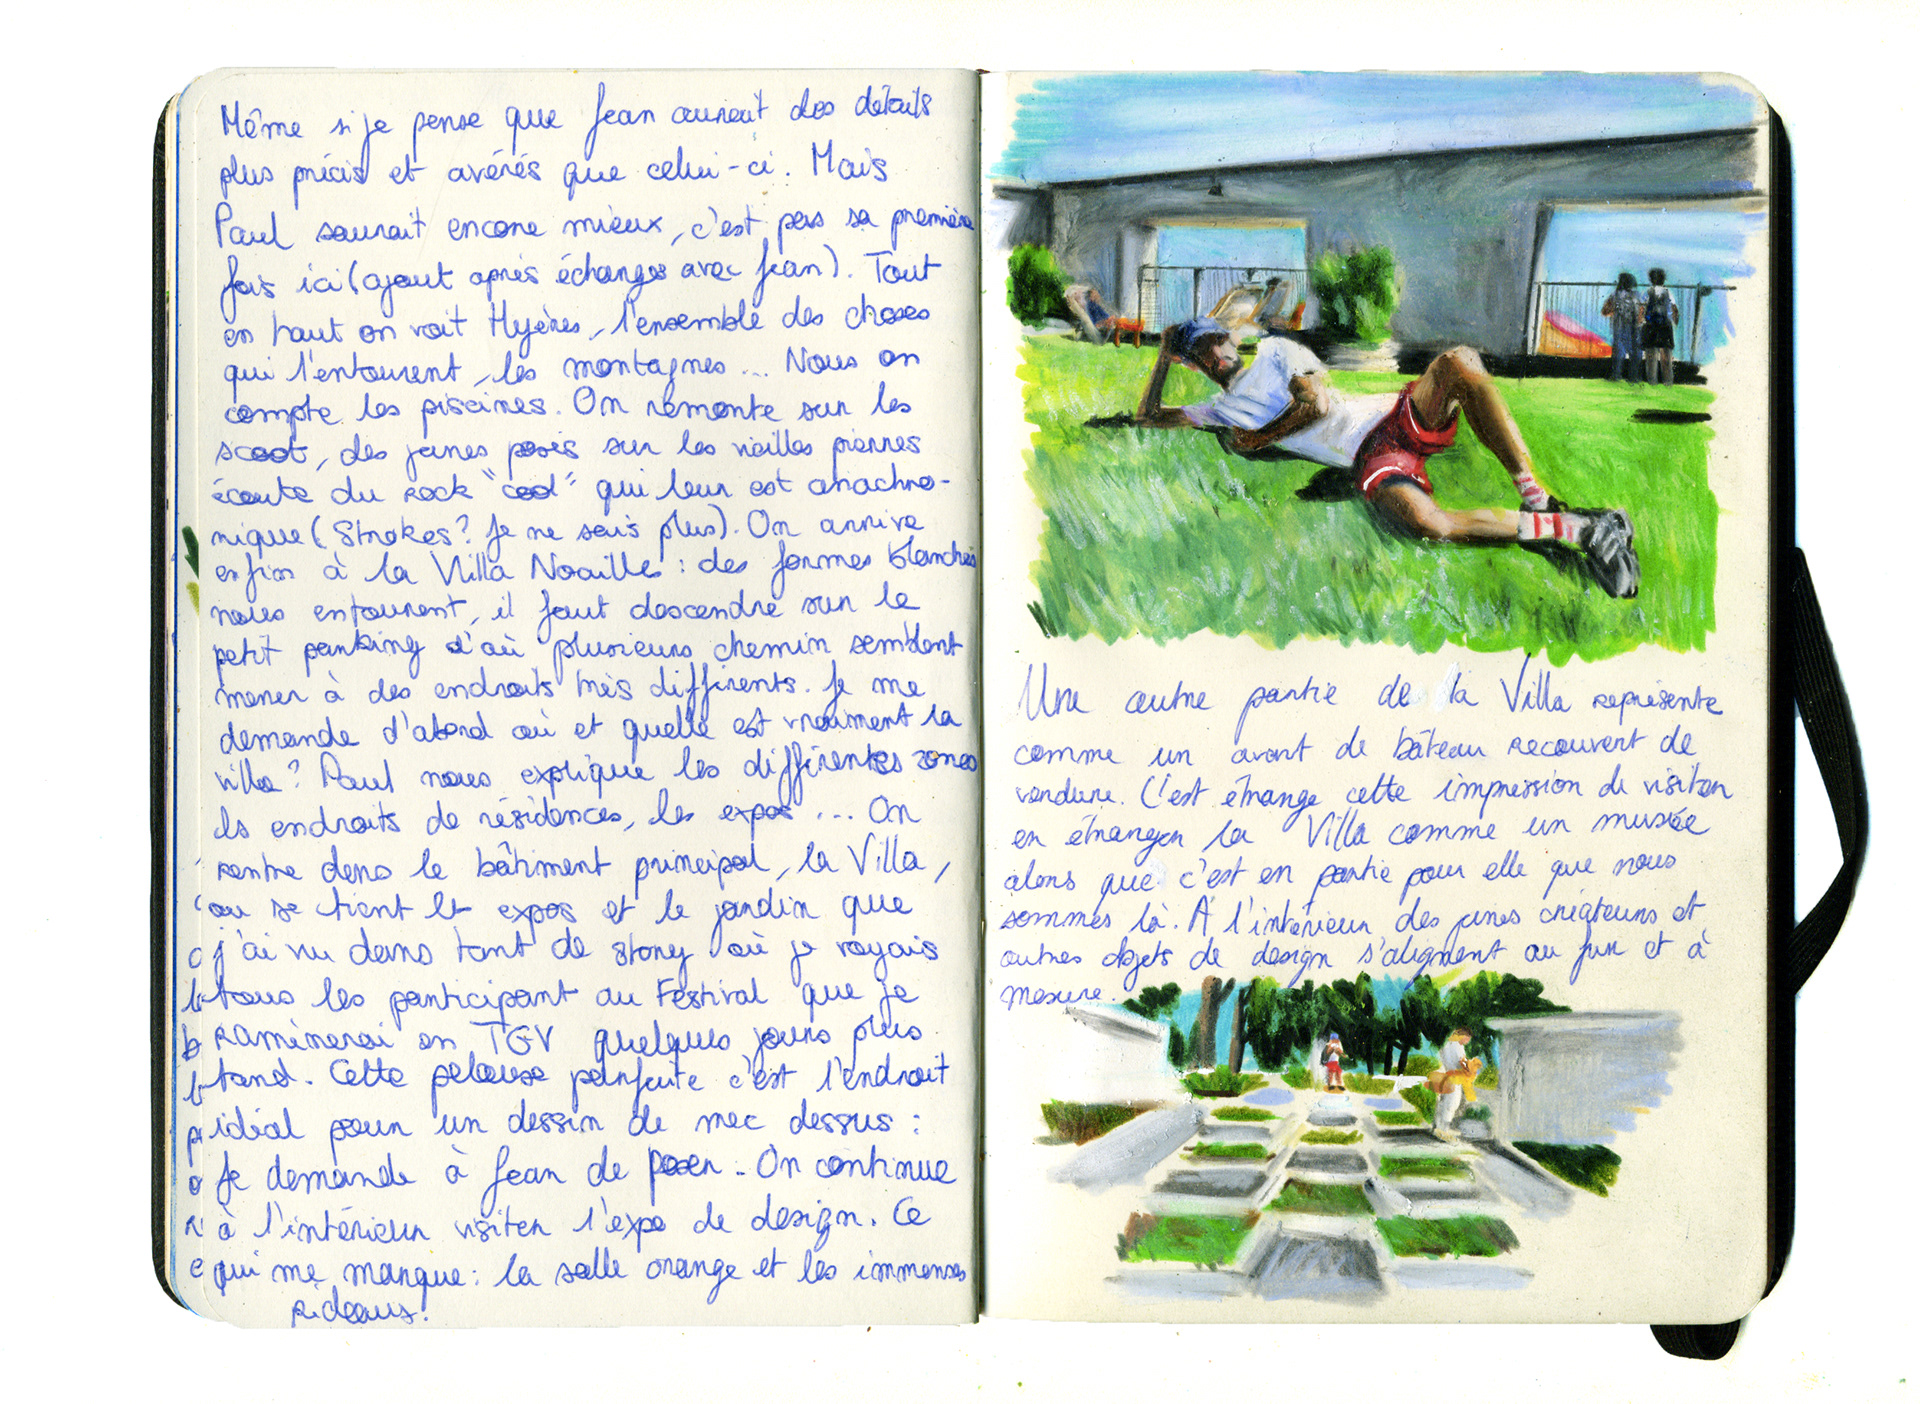 Même si je pense que Jean aurait des détails
plus précis et avérés que celui-ci. Mais
Paul saurait encore mieux, c'est pas sa première
fois ici (ajout après échanges avec Jean). Tout
en haut on voit Hyères, l'ensemble des choses
qui l'entourent, les montagnes... Nous on
compte les piscines. On remonte sur les
scoot, des jeunes posés sur les vieilles pierres
écoute du rock "cool" qui leur est anachro-
nique (Strokes? Je ne sais plus). On arrive
enfin à la Villa Noailles : des formes blanches
nous entourent, il faut descendre sur le
petit parking d'où plusieurs chemin semblent
mener à des endroits très différents. Je me
demande d'abord où et quelle est vraiment la
villa? Paul nous explique les différentes zones
ls endroits de résidences, les expos ... On
rentre dans le bâtiment principal, la Villa,
où se tient les expos et le jardin que
j'ai vu dans tant de story où je voyais
tous les participant au Festival que je
ramènerai en TGV quelques jours plus
tard. Cette pelouse parfaite c'est l'endroit
idéal pour un dessin de mec dessus :
Je demande à Jean de poser. On continue
à l'intérieur visiter l'expo de design. Ce
qui me manque : la salle orange et les immenses
rideaux!
Une autre partie de la Villa représente
comme un avant de bâteau recouvert de
verdure. C'est étrange cette impression de visiter
en étranger la Villa comme un musée
alors que c'est en partie pour elle que nous
sommes là. A l'intérieur des junes créateurs et
outres objets de design s'alignent au fur et à
mesure.